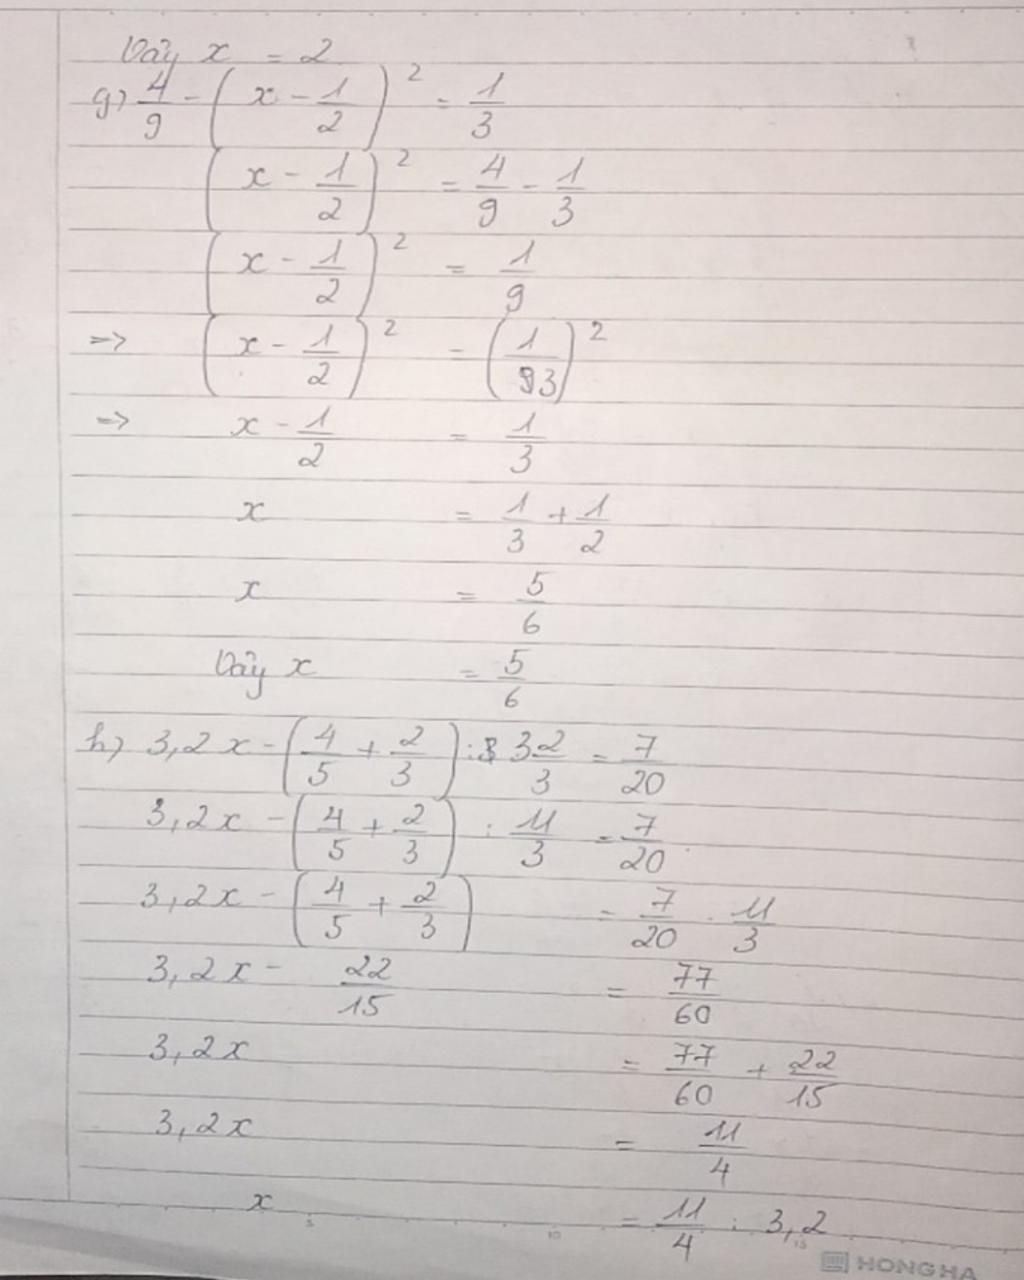 Vậy x = 2
g) 4/9 - (x - 1/2)² = 1/3
(x - 1/2)² = 4/9 - 1/3
(x - 1/2)² = 1/9
=> (x - 1/2)² = (1/3)²
=> x - 1/2 = 1/3
x = 1/3 + 1/2
x = 5/6
Vậy x = 5/6
h) 3,2x - (4/5 + 2/3) : 3 2/3 = 7/20
3,2x - (4/5 + 2/3) : 11/3 = 7/20
3,2x - (4/5 + 2/3) = 7/20 . 11/3
3,2x - 22/15 = 77/60
3,2x = 77/60 + 22/15
3,2x = 11/4
x = 11/4 : 3,2
5 10 15
HONG HA